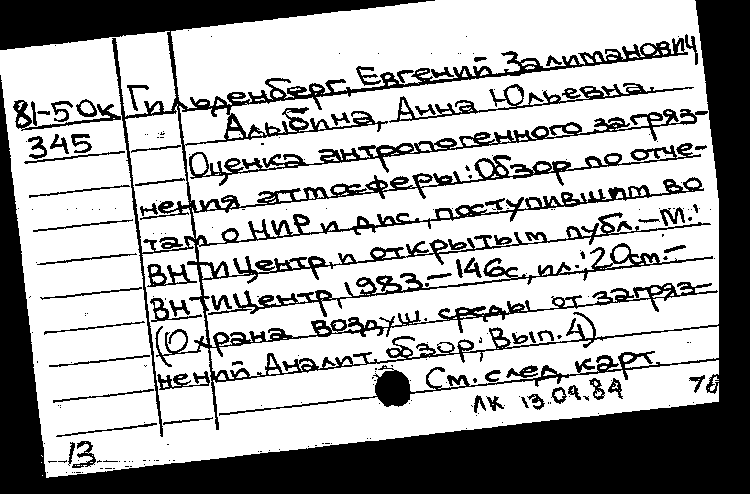 81-50к Гильденберг, Евгений Залманович,
345 Алыбина, Анна Юльевна.
Оценка антропогенного загряз-
нения атмосферы: Обзор по отче-
там о НИР и дис., поступившим во
ВНТИЦентр, и открытым публ. – М.:
ВНТИЦентр, 1983. – 146с., ил.; 20см. –
(Охрана воздуш. среды от загряз-
нений. Аналит. обзор; Вып. 4)
См. след. карт.
ЛК 13.09.84
13